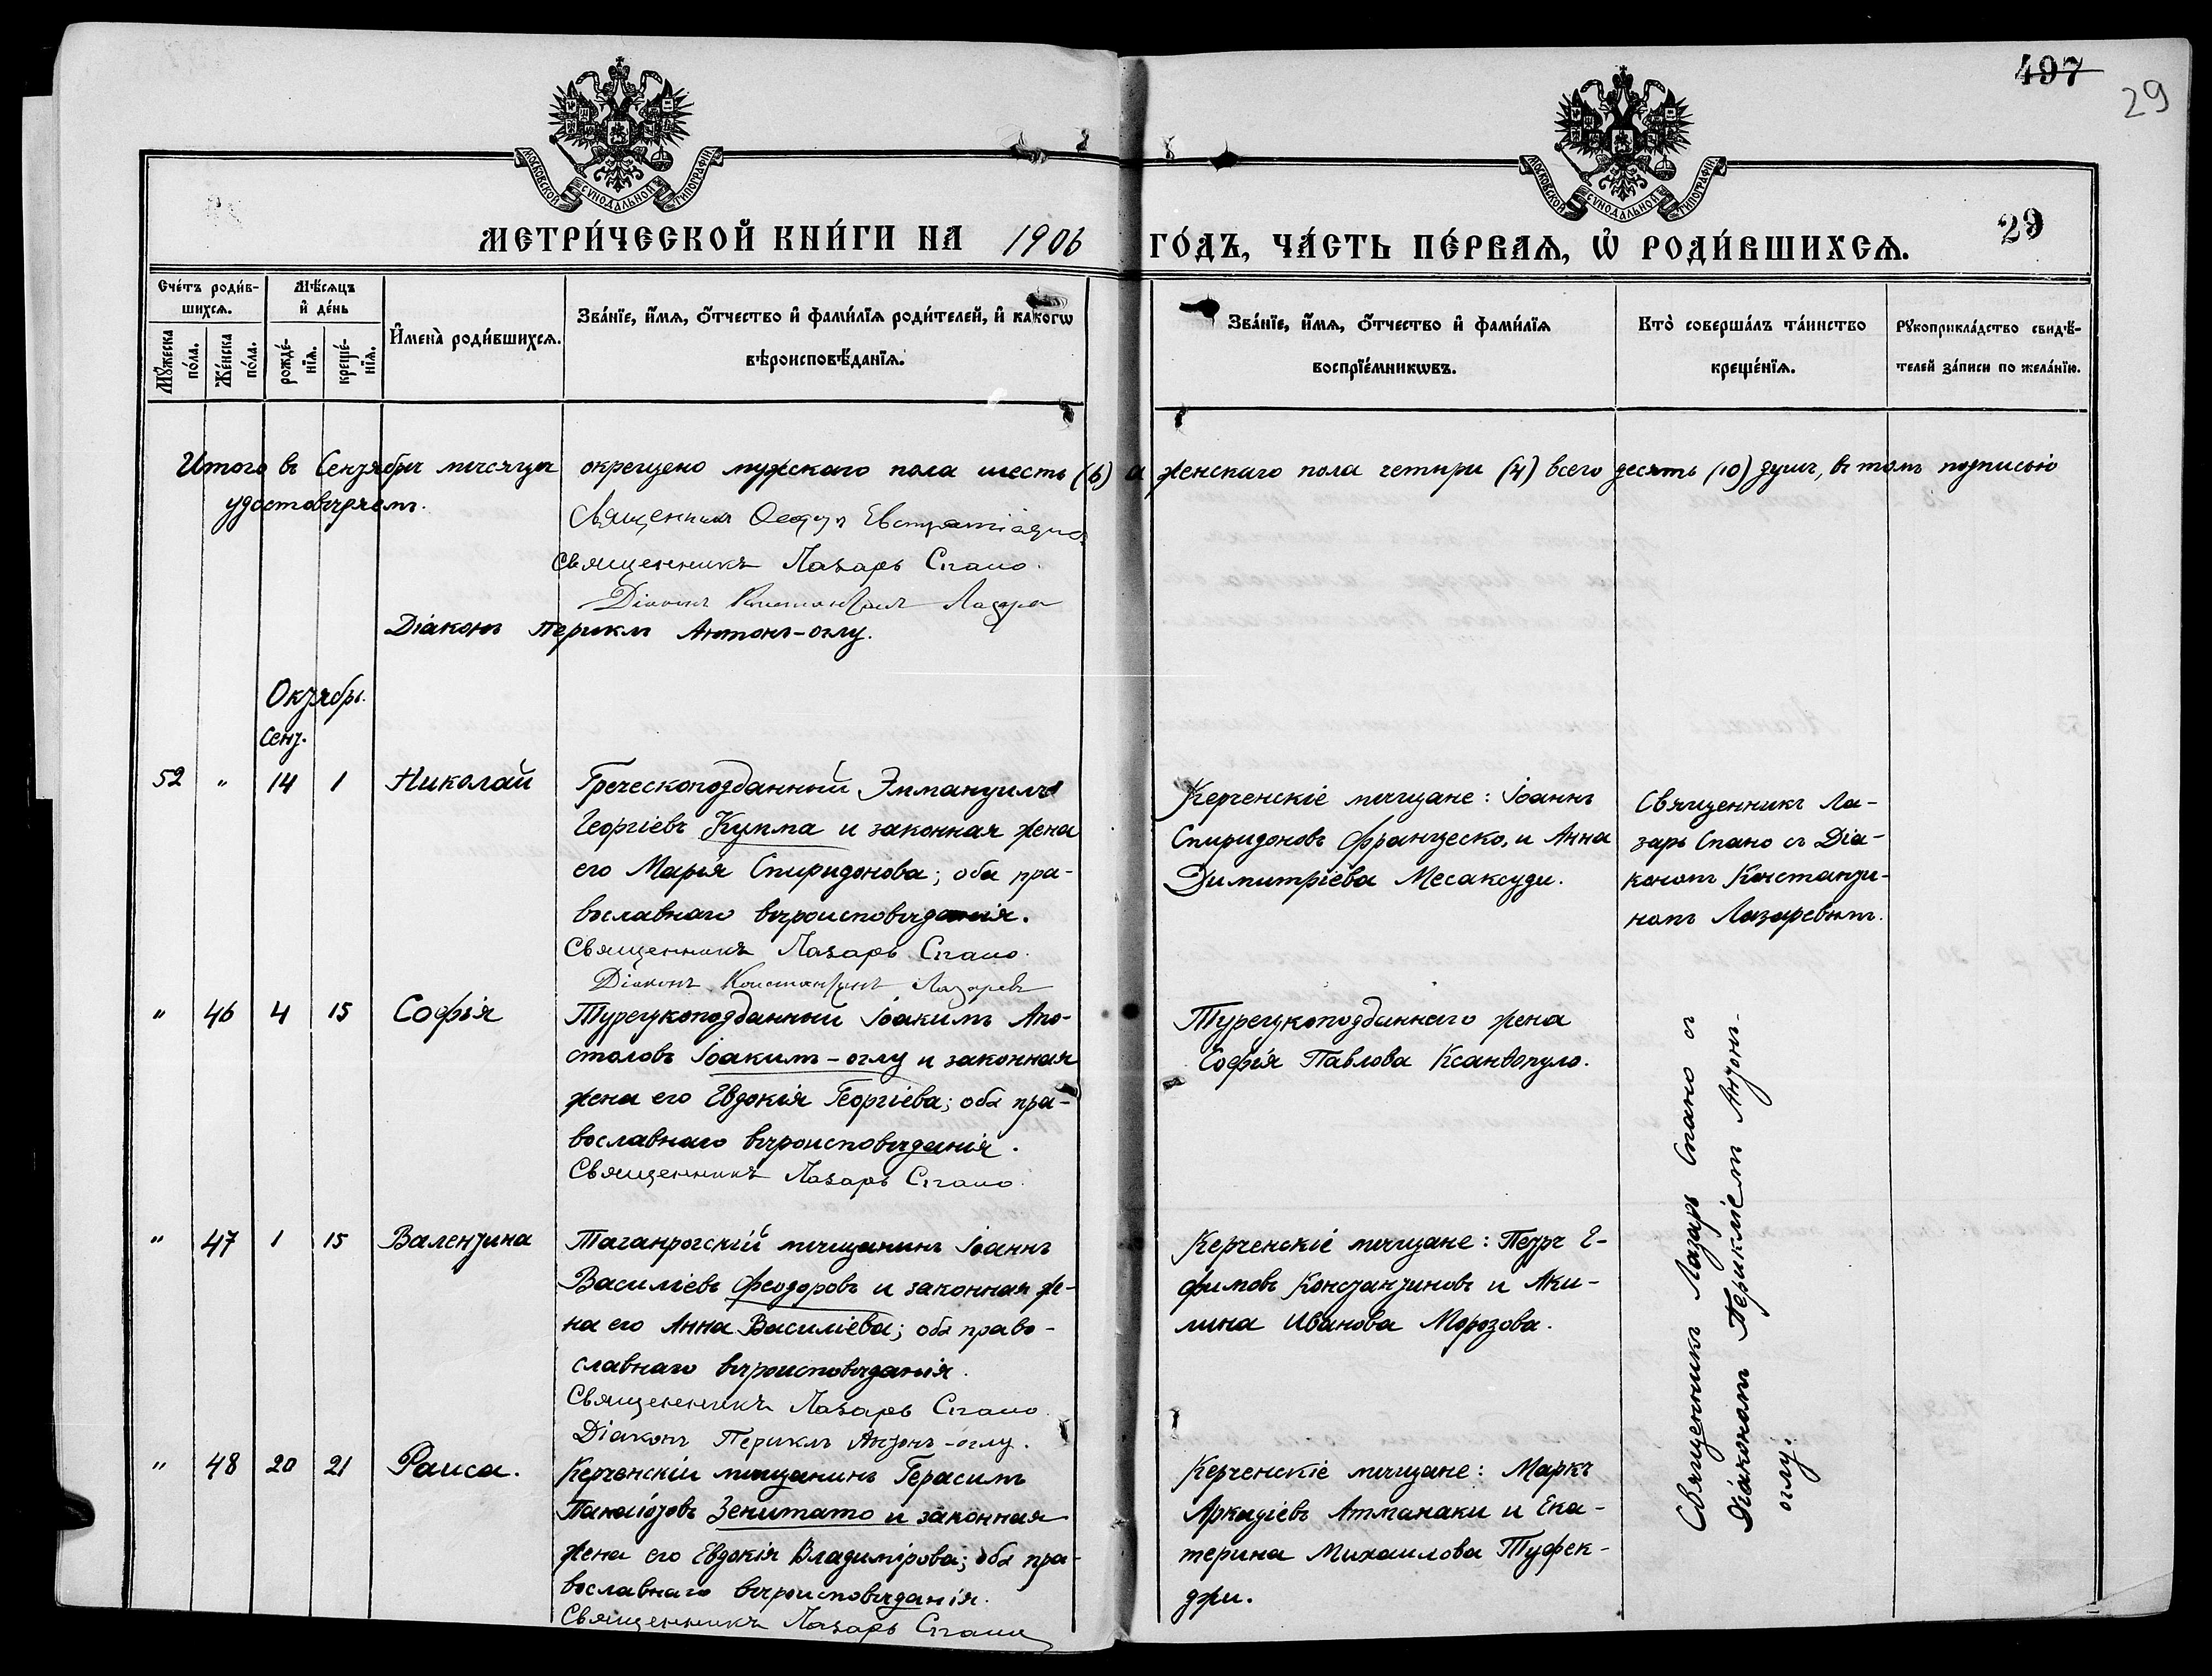 497
29
МОСКОВСКОЙ СѴНОДАЛЬНОЙ ТИПОГРАФІИ
МОСКОВСКОЙ СѴНОДАЛЬНОЙ ТИПОГРАФІИ
МЕТРИ́ЧЕСКОЙ КНИ́ГИ НА 1906 ГО́ДЪ, ЧА́СТЬ ПЕ́РВАЯ, Ѡ РОДИ́ВШИХСЯ.
29
Сче́тъ роди́в-
шихся.
Мꙋ́жеска по́ла.
Же́нска по́ла.
Мѣ́сяцъ и де́нь
рожде́-
нїя.
креще́-
нїя.
Имена̀ роди́вшихся.
Зва́нїе, и́мя, ѻ́тчество и фами́лїя роди́телей, и какогѡ
вѣроисповѣ́данїя.
Зва́нїе, и́мя, ѻ́тчество и фами́лїя
воспрїе́мникѡвъ.
Кто̀ соверша́лъ та́инство
креще́нїя.
Рꙋкоприкла́дство свидѣ́-
телей за́писи по жела́нїю.
Итого въ Сентябрѣ мѣсяцѣ окрещено мужскаго пола шесть (6) а женскаго пола четыри (4) всего десять (10) душъ, въ томъ подписью
удостовѣряемъ.
Священникъ Евстратіади
Священникъ Лазарь Спано.
Діаконъ Константинъ Лазаре
Діаконъ Периклъ Антонъ-оглу.
Октябрь.
Сент.
52 " 14 1 Николай
Греческоподданный Эммануилъ
Георгіевъ Купма и законная жена
его Марія Спиридонова; оба пра-
вославнаго вѣроисповѣданія.
Священникъ Лазарь Спано.
Діаконъ Константинъ Лазаревъ
Керченскіе мѣщане: Іоаннъ
Спиридоновъ Франческо, и Анна
Димитріева Месаксуди.
Священникъ Ла-
зарь Спано съ Діа-
кономъ Константи-
номъ Лазаревымъ.
" 46 4 15 Софія
Турецкоподданный Іоакимъ Апо-
столовъ Іоакимъ-оглу и законная
жена его Евдокія Георгіева; оба пра-
вославнаго вѣроисповѣданія.
Священникъ Лазарь Спано.
Турецкоподданнаго жена
Софія Павлова Ксанѳопуло.
Священникъ Лазарь Спано съ
Діакономъ Перикліемъ Антонъ-
оглу.
" 47 1 15 Валентина
Таганрогскій мѣщанинъ Іоаннъ
Василіевъ Феодоровъ и законная же-
на его Анна Василіева; оба право-
славнаго вѣроисповѣданія.
Священникъ Лазарь Спано.
Діаконъ Периклъ Антонъ-оглу.
Керченскіе мѣщане: Петръ Е-
фимовъ Константиновъ и Аки-
лина Иванова Морозова.
" 48 20 21 Раиса.
Керченскій мѣщанинъ Герасимъ
Панаіотовъ Зенитато и законная
жена его Евдокія Владимірова; оба пра-
вославнаго вѣроисповѣданія.
Священникъ Лазарь Спано
Керченскіе мѣщане: Маркъ
Аркадіевъ Атманаки и Ека-
терина Михаилова Туфек-
джи.